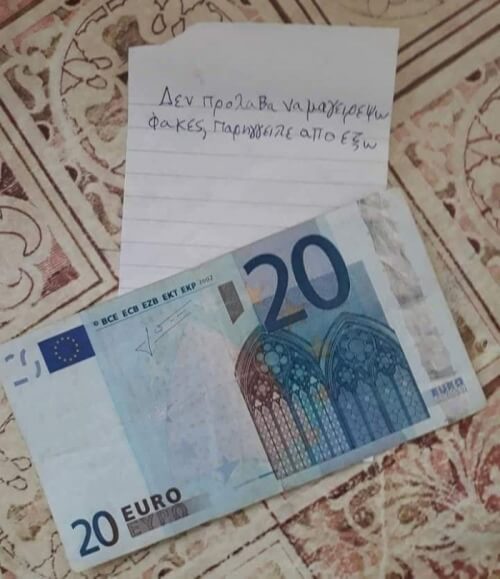 Δεν προλαβα να μαγειρεψω
φακες, παρηγγειλε απο εξω
© BCE ECB EZB EKT EKP 2002
20
EURO
20 EURO
ΕΥΡΩ